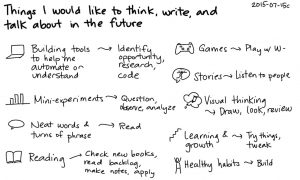 Things I would like to think, write, and
talk about in the future
2015-07-15c
Building tools
to help me
automate or
understand
→ Identify
opportunity,
research,
code
Mini-experiments → Question,
observe, analyze
Neat words &
turns of phrase
→ Read
Reading → Check new books,
read backlog,
make notes, apply
Games → Play w/ W-
Stories → Listen to people
Visual thinking
→ Draw, look, review
Learning &
growth
→ Try things,
tweak
Healthy habits → Build